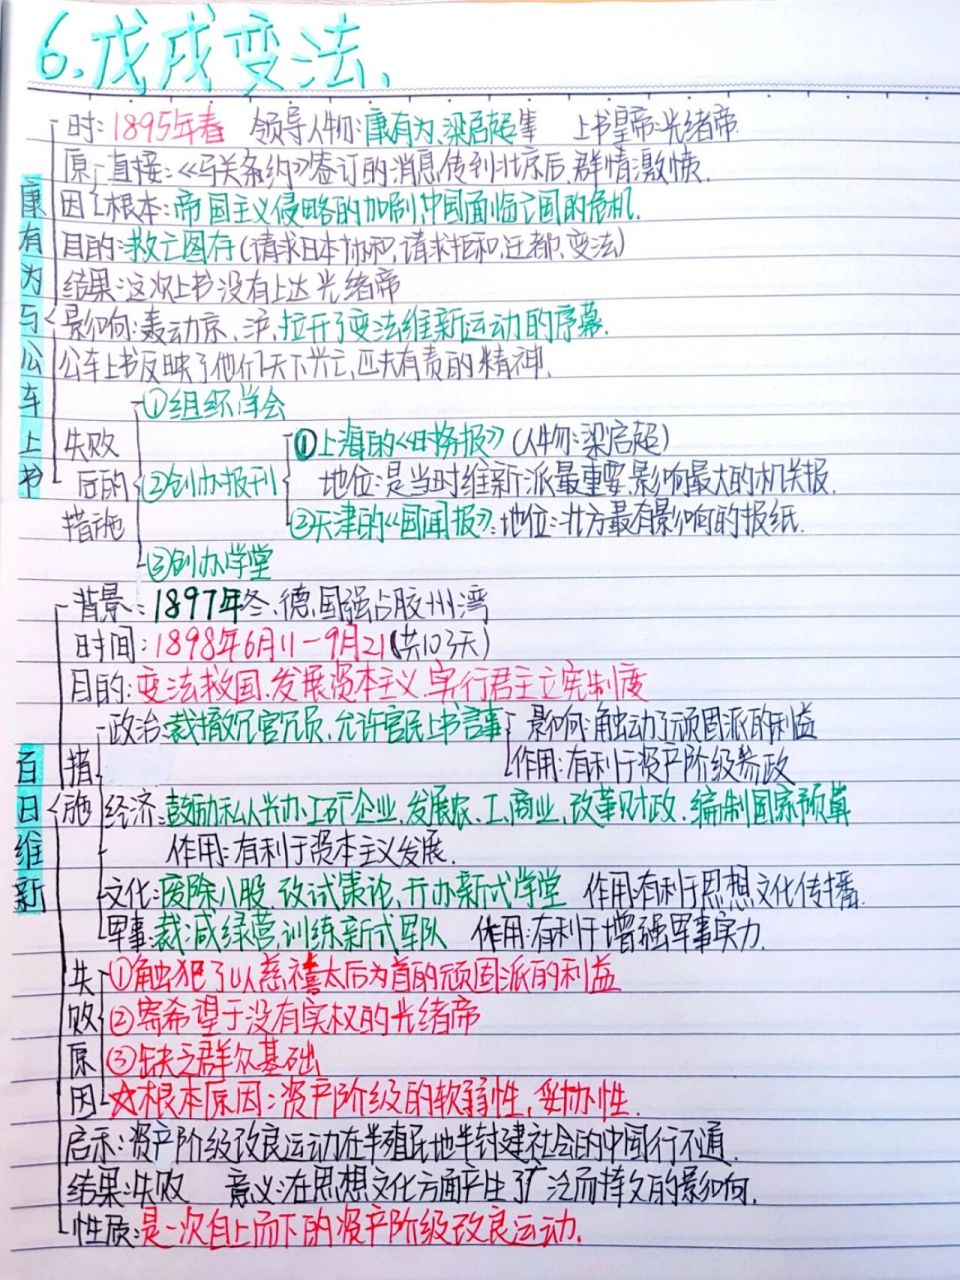 6.戊戌变法、
康有为与公车上书
时:1895年春 领导人物:康有为、梁启超等 上书皇帝:光绪帝
原因
直接:《马关条约》签订的消息传到北京后,群情激愤.
根本:帝国主义侵略的加剧,中国面临亡国的危机.
目的:救亡图存(请求日本协和,请求拒和、迁都、变法)
结果:这次上书没有上达光绪帝
影响:轰动京、沪,拉开了变法维新运动的序幕.
公车上书反映了他们天下兴亡,匹夫有责的精神.
失败后的措施
①组织学会
②创办报刊
①上海的《时务报》(人物:梁启超)
地位:是当时维新派最重要、影响最大的机关报.
②天津的《国闻报》:地位:北方最有影响的报纸.
③创办学堂
百日维新
背景:1897年冬、德国强占胶州湾
时间:1898年6月11-9月21(共103天)
目的:变法救国、发展资本主义、实行君主立宪制度
措施
政治:裁撤冗官冗员,允许官民上书言事
影响:触动了顽固派的利益
作用:有利于资产阶级参政
经济:鼓励私人兴办工矿企业,发展农、工、商业,改革财政、编制国家预算
作用:有利于资本主义发展.
文化:废除八股,改试策论,开办新式学堂 作用:有利于思想文化传播.
军事:裁减绿营,训练新式军队 作用:有利于增强军事实力.
失败原因
①触犯了以慈禧太后为首的顽固派的利益
②寄希望于没有实权的光绪帝
③缺乏群众基础
☆根本原因:资产阶级的软弱性,妥协性.
启示:资产阶级改良运动在半殖民地半封建社会的中国行不通.
结果:失败 意义:在思想文化方面产生了广泛而持久的影响.
性质:是一次自上而下的资产阶级改良运动.